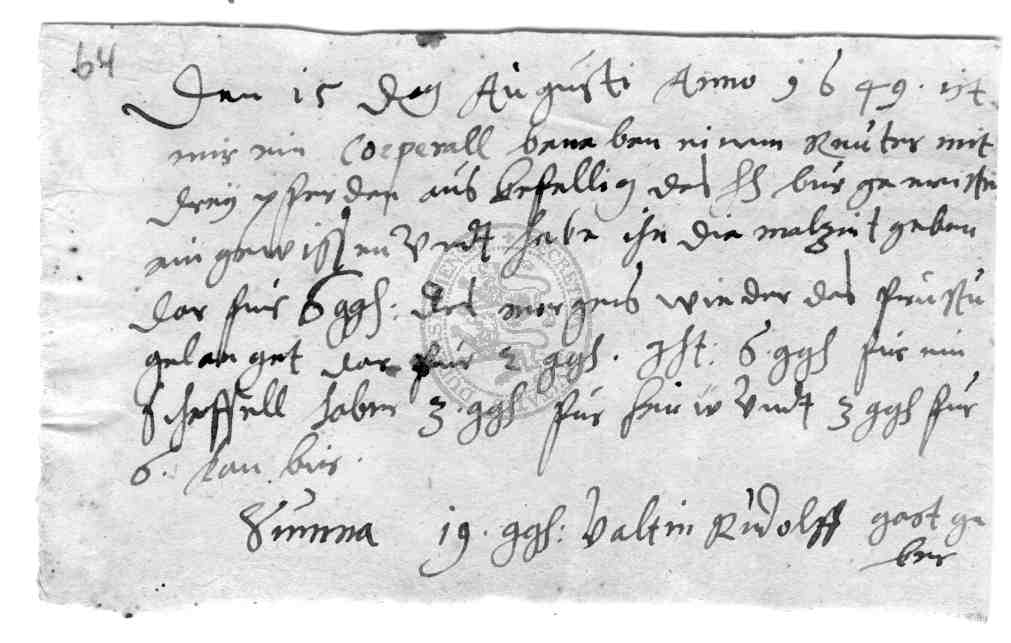 64
Den 15 Dag Augusti Anno 1649. ist
mir ein Corperall bene ben einem Reuter mit
dreÿ pferden aus befellig des H burgemeisters
ein gewissen Vndt habe ihn die malzeit geben
dar fur 5 ggl: des morgens wieder das frustu
gelanget dar fur 2 ggl. Ist: 6 ggl fur ein
scheffell haber 3 ggl fur heuw Vndt 3 ggl fur
6. kan. bir.
Summa 19. ggl: Valtin Rudolff gast ge
ber